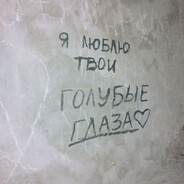 Я ЛЮБЛЮ
ТВОИ
ГОЛУБЫЕ
ГЛАЗА♡